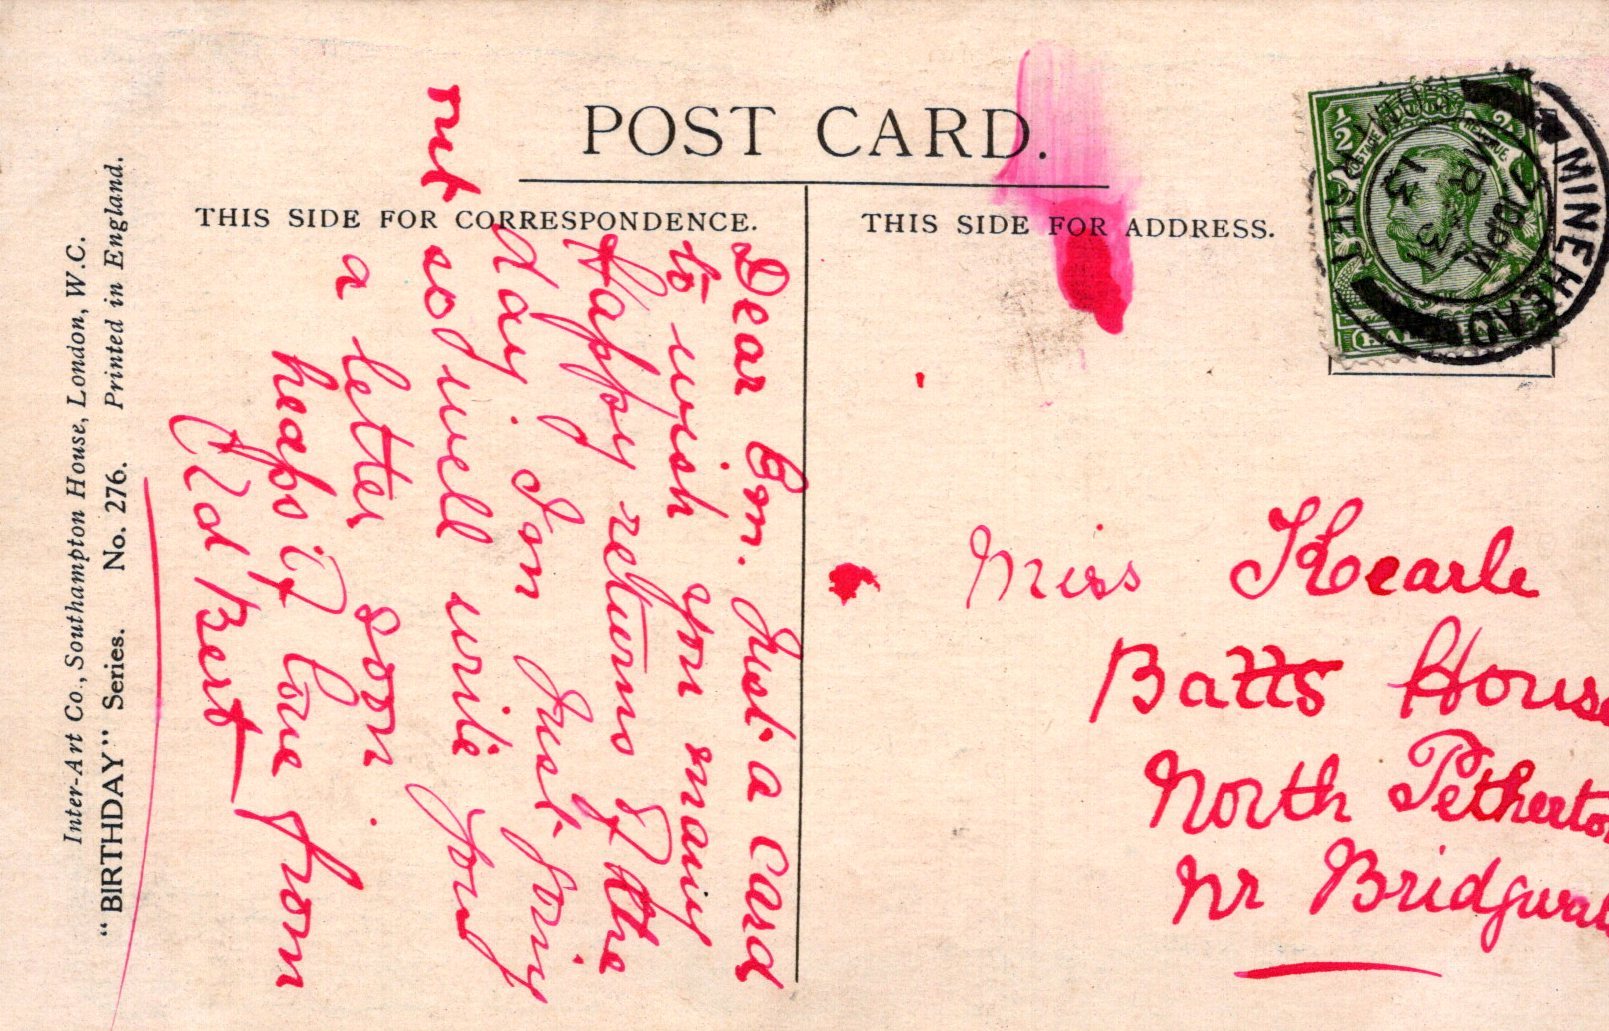 POST CARD.
THIS SIDE FOR CORRESPONDENCE.
THIS SIDE FOR ADDRESS.
Inter-Art Co., Southampton House, London, W.C.
"BIRTHDAY" Series. No. 276. Printed in England.
Dear Em. Just a card
to wish you many
Happy returns of the
day. I'm just going
out so will write you
a letter soon.
heaps of love from
Old Bert
Miss Kearle
Batts House
North Petherton
Nr Bridgwat
MINEHEAD
MR 31
13